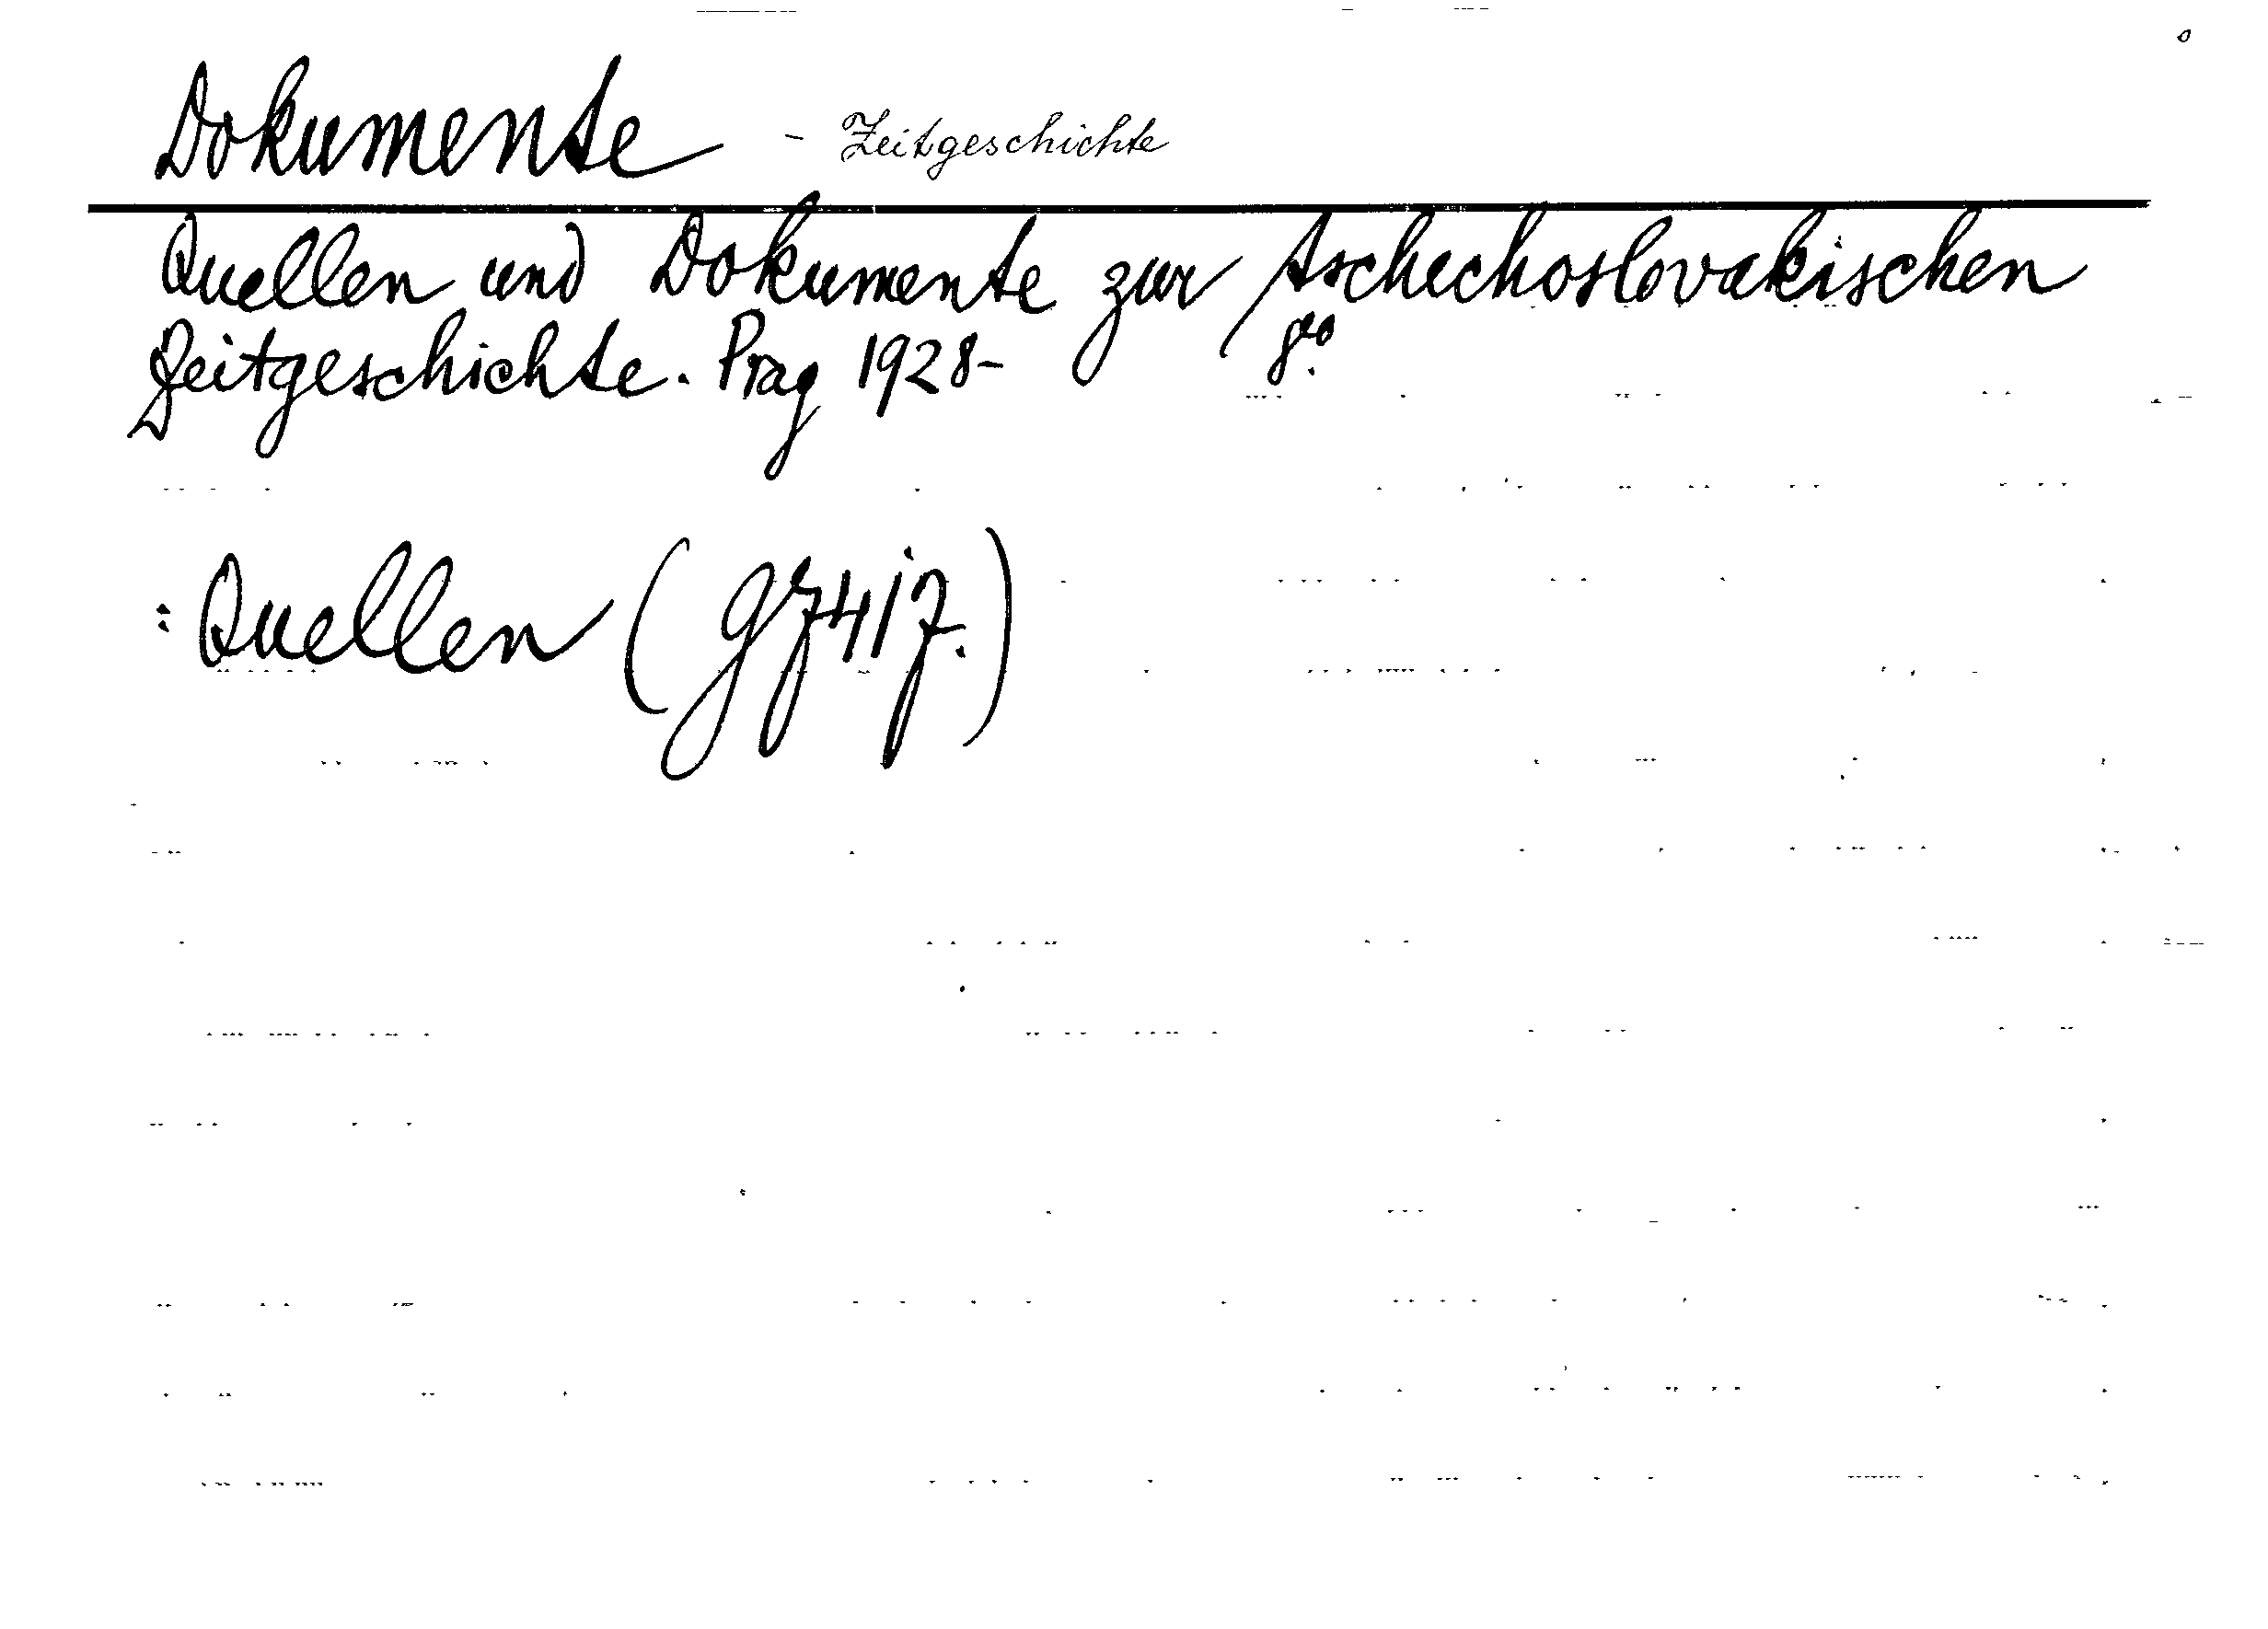 Dokumente - Zeitgeschichte
Quellen und Dokumente zur tschechoslovakischen
Zeitgeschichte. Prag 1928- 8°.
: Quellen